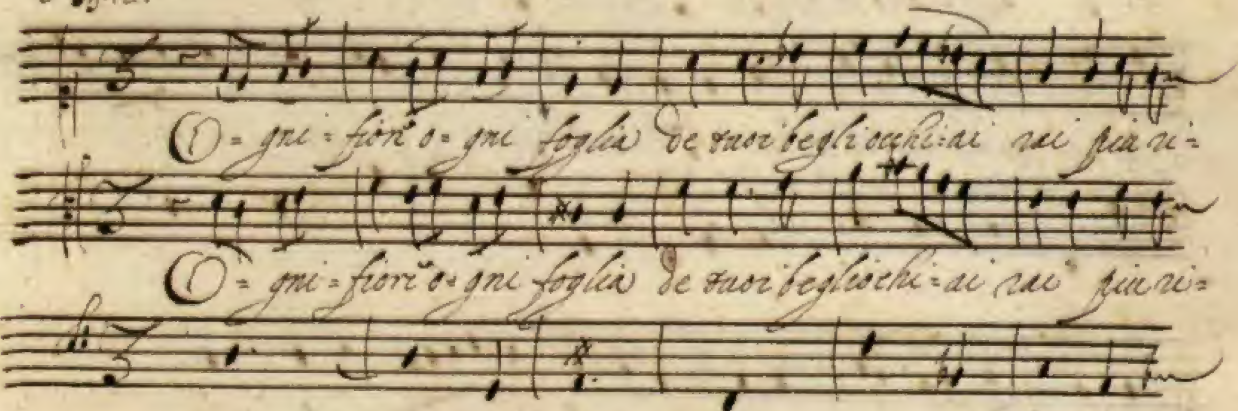 O = gni = fiori o = gni foglia de tuoi begli occhi = ai rai piu ri =
O = gni = fiori o = gni foglia de tuoi begliochi = ai rai piu ri =